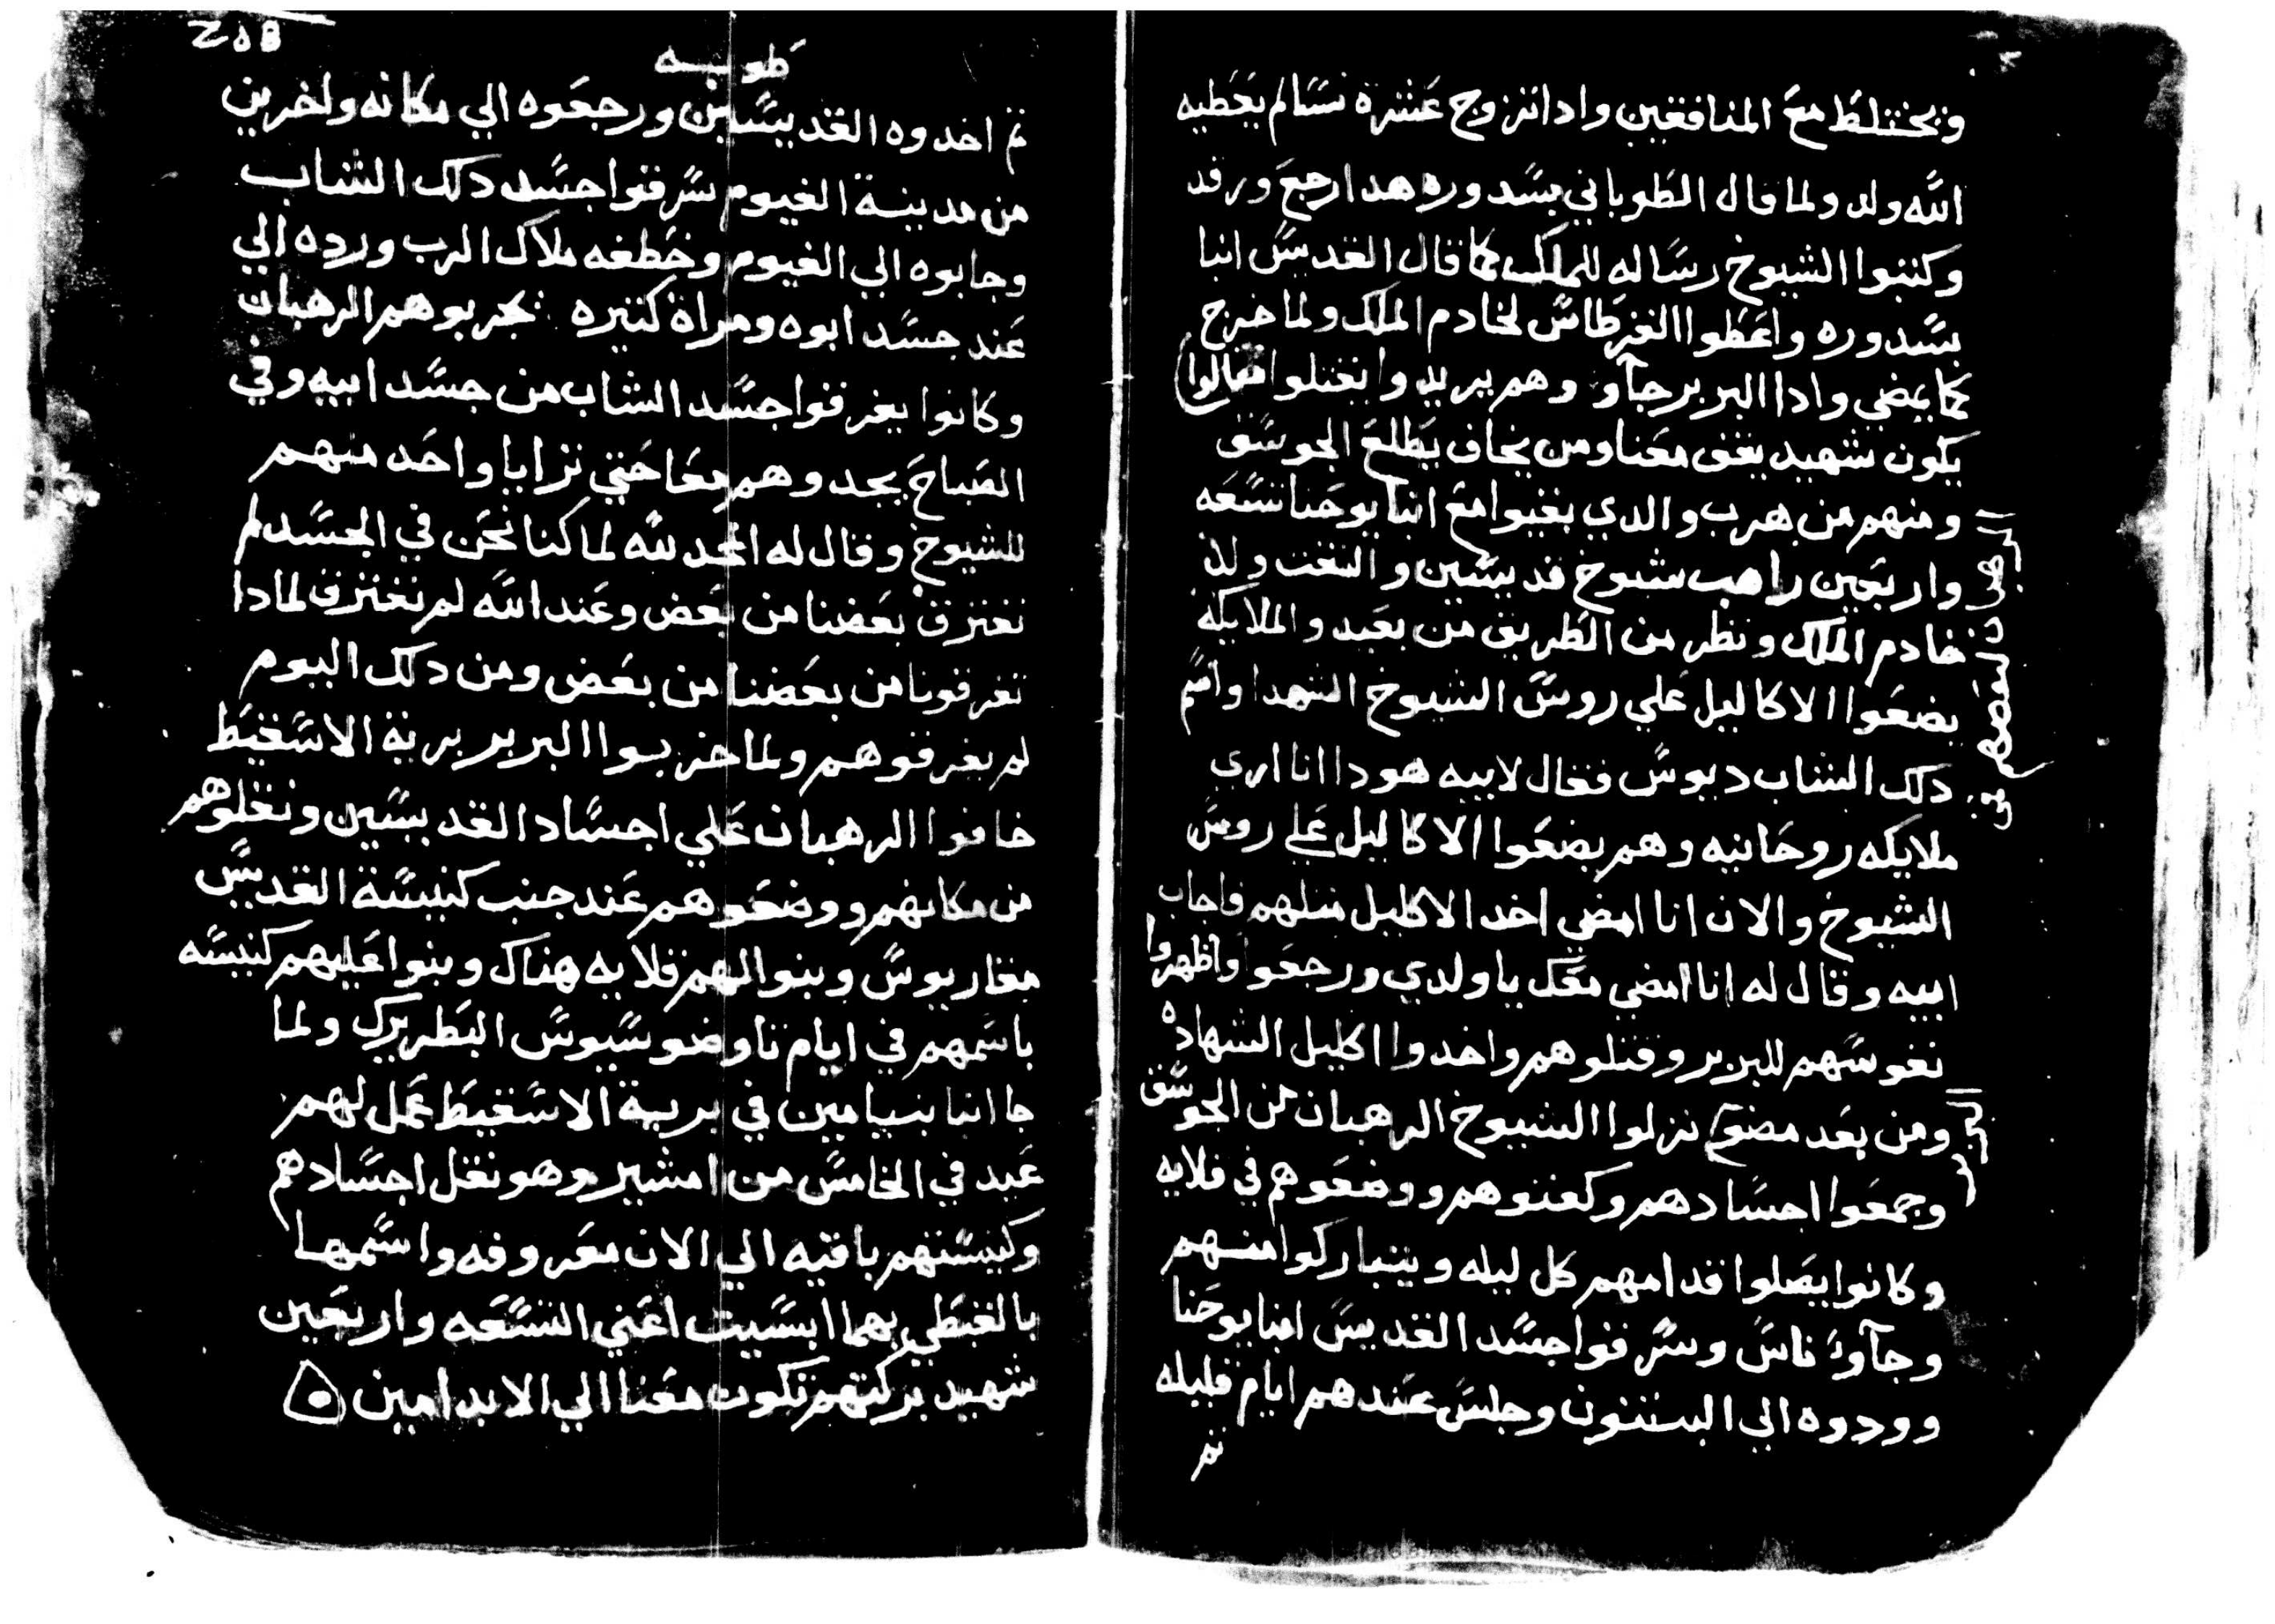 ويختلط مع المنافقين وادا تزوج عشرة نسا لم يعطيه
الله ولد ولما قال الطوباني يسدوره هدا رجع ورقد
وكتبوا الشيوخ رساله للملك كما قال القديس انبا
يسدوره واعطوا القرطاس لخادم الملك ولما خرج
كما يمضي وادا البربر جآو وهم يريدوا يقتلوا فقالوا
يكون شهيد يبقى معنا ومن يخاف يطلع الجوسق
ومنهم من هرب والدي بقيوا مع انبا يوحنا تسعه
واربعين راهب شيوخ قديسين والتفت ولد
خادم الملك ونظر من الطريق من بعيد والملايكة
يضعوا الاكاليل علي روس الشيوخ الشهدا واسم
دلك الشاب ديوس فقال لابيه هودا انا اري
ملايكه روحانيه وهم يضعوا الاكاليل علي روس
الشيوخ والان انا امضي اخد الاكليل متلهم فاجاب
ابيه وقال له انا امضي معك يا ولدي ورجعوا واظهروا
نفوسهم للبربر وقتلوهم واخدوا اكليل الشهاده
ومن بعد مضو نزلوا الشيوخ الرهبان من الجوسق
وجمعوا اجسادهم وكفنوهم ووضعوهم في قلايه
وكانوا يصلوا قدامهم كل ليله ويتباركوا منهم
وجآو ناس وسرقوا جسد القديس انبا يوحنا
وودوه الي البتنون وجلس عندهم ايام قليله
تم
طوبه
تم اخدوه القديسين ورجعوه الي مكانه واخرين
من مدينة الفيوم سرقوا جسد دلك الشاب
وجابوه الي الفيوم وخطفه ملاك الرب ورده الي
عند جسد ابوه ومراة كتيره يجربوهم الرهبان
وكانوا يفرقوا جسد الشاب من جسد ابيه وفي
الصباح يجدوهم معا حتي ترايا واحد منهم
للشيوخ وقال له الحمد لله لما كنا نحن في الجسد لم
نفترق بعضنا من بعض وعند الله لم نفترق لمادا
تفرقونا من بعضنا من بعض ومن دلك اليوم
لم يفرقوهم ولما خربوا البربر برية الاسقيط
خافوا الرهبان علي اجساد القديسين ونقلوهم
من مكانهم ووضعوهم عند جنب كنيسة القديس
مقاريوس وبنوا لهم قلايه هناك وبنوا عليهم كنيسه
باسمهم في ايام تاوضوسيوس البطريرك ولما
جا انبا بنيامين في برية الاسقيط عمل لهم
عيد في الخامس من امشير وهو نقل اجسادهم
وكنيستهم باقيه الي الان معروفه واسمها
بالقبطي بهما ابسيت اعني التسعه واربعين
شهيد بركتهم تكون معنا الي الابد امين